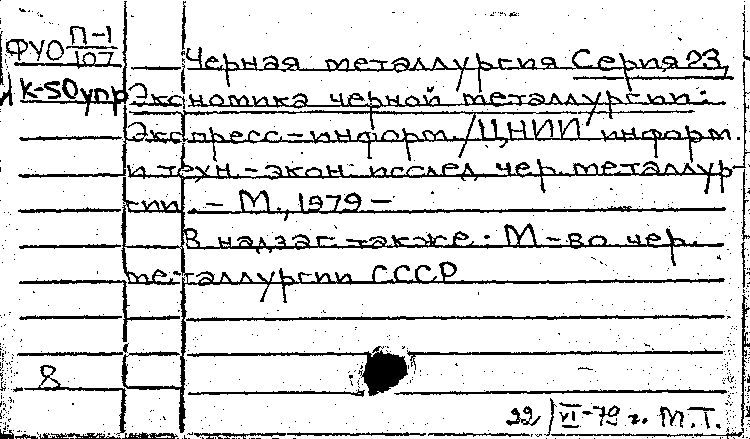 ФУО П-1/107
К-50упр
Черная металлургия Серия 23,
Экономика черной металлургии:
Экспресс-информ./ЦНИИ информ.
и техн.-экон. исслед. чер. металлур-
гии. - М., 1979 -
В надзаг. также: М-во чер.
металлургии СССР
8
22/VI-79 г. М.Т.